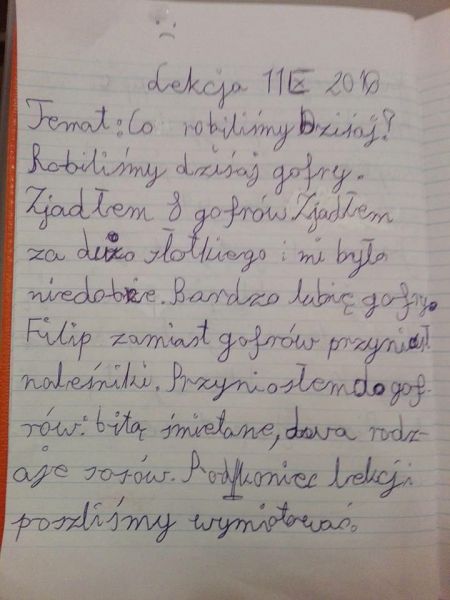 Lekcja 11 IX 2018
Temat: Co robiliśmy Dzisiaj?
Robiliśmy dzisiaj gofry.
Zjadłem 8 gofrów. Zjadłem
za dużo słotkiego i mi było
niedobrze. Bardzo lubię gofry.
Filip zamiast gofrów przyniusł
naleśniki. Przyniosłem do gof-
rów: bitą śmietane, dwa rodz-
aje sosów. Pod koniec lekcji
poszliśmy wymiotować.